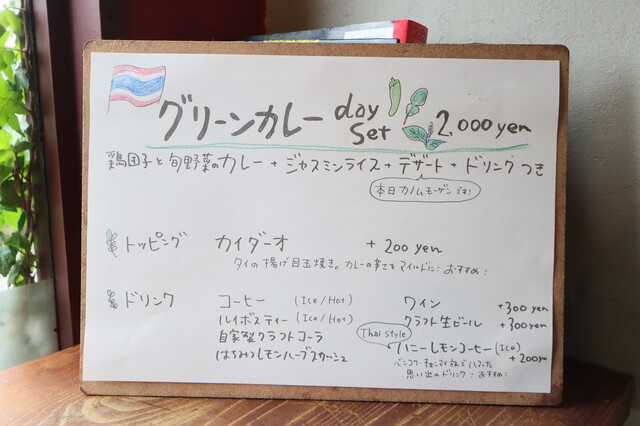 グリーンカレー day Set 2,000 yen
鶏団子と旬野菜のカレー + ジャスミンライス + デザート + ドリンク つき
本日カノムモーゲンです!
トッピング カイダーオ + 200 yen
タイの揚げ目玉焼き。カレーの辛さをマイルドに! おすすめ!
ドリンク コーヒー (Ice/Hot) ワイン +300 yen
ルイボスティー (Ice/Hot) クラフト生ビール +300 yen
自家製クラフトコーラ Thai style ハニーレモンコーヒー (Ice) +200yen
はちみつレモンハーブスカッシュ バンコク・チェンマイ旅でハマった
思い出のドリンク! おすすめ!